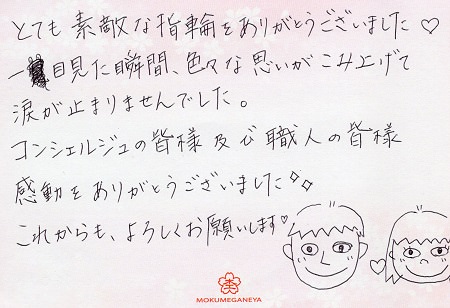 とても素敵な指輪をありがとうございました♡
一目見た瞬間、色々な思いがこみ上げて
涙が止まりませんでした。
コンシェルジュの皆様及び職人の皆様
感動をありがとうございました
これからも、よろしくお願いします♡
MOKUMEGANEYA